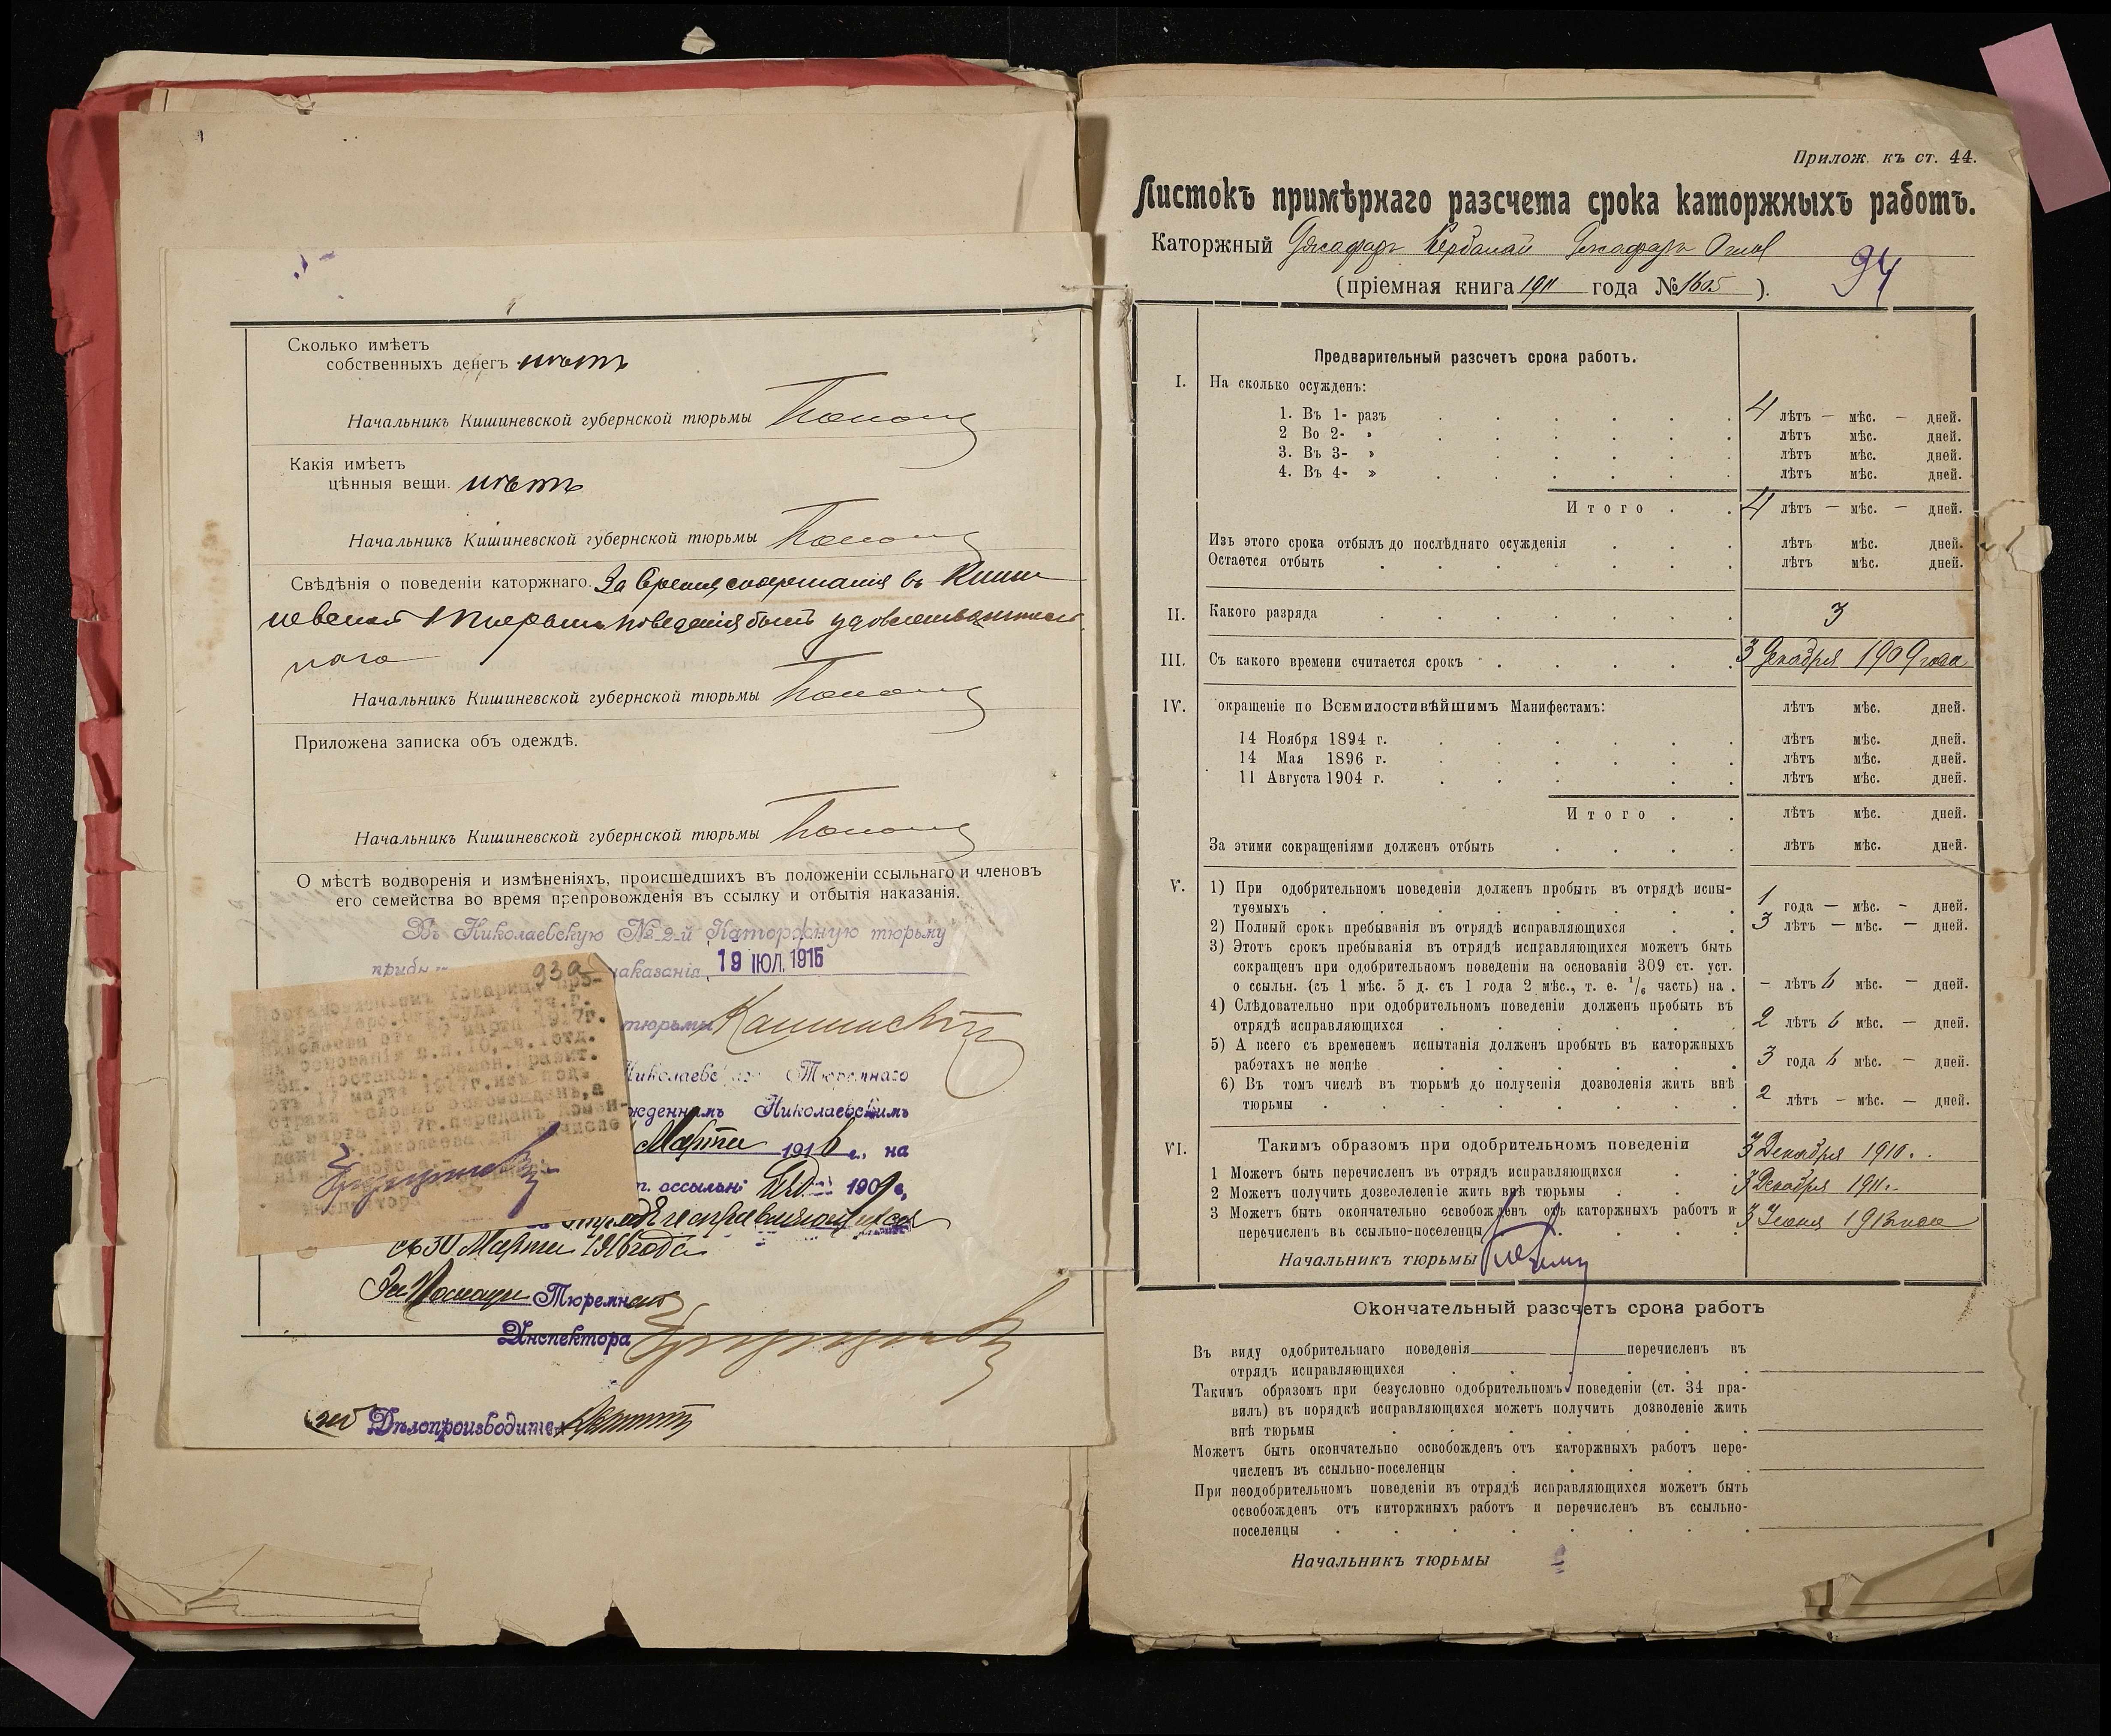 Сколько имѣетъ
собственныхъ денегъ нѣтъ
Начальникъ Кишиневской губернской тюрьмы
Какія имѣетъ
цѣнныя вещи. нѣтъ
Начальникъ Кишиневской губернской тюрьмы
Свѣдѣнія о поведеніи каторжнаго. За время содержанія въ Киши
невской тюрьмѣ поведенія былъ удовлетворитель
наго
Начальникъ Кишиневской губернской тюрьмы
Приложена записка объ одеждѣ.
Начальникъ Кишиневской губернской тюрьмы
О мѣстѣ водворенія и измѣненіяхъ, происшедшихъ въ положеніи ссыльнаго и членовъ
его семейства во время препровожденія въ ссылку и отбытія наказанія.
Въ Николаевскую № 2-й Каторжную тюрьму
наказанія 19 ІЮЛ. 1915
939
тюрьмы
Николаевс Тюремнаго
жденнымъ Николаевскимъ
Марта 1916 г., на
1909 г.
отрядъ исправляющихся
съ 30 Марта 1916 года
Тюремнаго
Инспектора
Дѣлопроизводите
Прилож. къ ст. 44.
Листокъ примѣрнаго разсчета срока каторжныхъ работъ.
Каторжный Джафаръ Кербалай Джафаръ Оглы
94
(пріемная книга 1911 года № 1605 ).
Предварительный разсчетъ срока работъ.
I. На сколько осужденъ:
1. Въ 1- разъ 4 лѣтъ — мѣс. — дней.
2 Во 2- » лѣтъ мѣс. дней.
3. Въ 3- » лѣтъ мѣс. дней.
4. Въ 4- » лѣтъ мѣс. дней.
Итого 4 лѣтъ — мѣс. — дней.
Изъ этого срока отбылъ до послѣдняго осужденія лѣтъ мѣс. дней.
Остается отбыть лѣтъ мѣс. дней.
II. Какого разряда 3
III. Съ какого времени считается срокъ 3 Декабря 1909 года
IV. окращеніе по Всемилостивѣйшимъ Манифестамъ: лѣтъ мѣс. дней.
14 Ноября 1894 г. лѣтъ мѣс. дней.
14 Мая 1896 г. лѣтъ мѣс. дней.
11 Августа 1904 г. лѣтъ мѣс. дней.
Итого лѣтъ мѣс. дней.
За этими сокращеніями долженъ отбыть лѣтъ мѣс. дней.
V. 1) При одобрительномъ поведеніи долженъ пробыть въ отрядѣ испы-
туемыхъ 1 года — мѣс. — дней.
2) Полный срокъ пребыванія въ отрядѣ исправляющихся 3 лѣтъ — мѣс. — дней.
3) Этотъ срокъ пребыванія въ отрядѣ исправляющихся можетъ быть
сокращенъ при одобрительномъ поведеніи на основаніи 309 ст. уст.
о ссыльн. (съ 1 мѣс. 5 д. съ 1 года 2 мѣс., т. е. 1/6 часть) на . — лѣтъ 6 мѣс. — дней.
4) Слѣдовательно при одобрительномъ поведеніи долженъ пробыть въ
отрядѣ исправляющихся 2 лѣтъ 6 мѣс. — дней.
5) А всего съ временемъ испытанія долженъ пробыть въ каторжныхъ
работахъ не менѣе 3 года 6 мѣс. — дней.
6) Въ томъ числѣ въ тюрьмѣ до полученія дозволенія жить внѣ
тюрьмы 2 лѣтъ — мѣс. — дней.
VI. Такимъ образомъ при одобрительномъ поведеніи
1 Можетъ быть перечисленъ въ отрядъ исправляющихся 3 Декабря 1910.
2 Можетъ получить дозволеленіе жить внѣ тюрьмы 3 Декабря 1911.
3 Можетъ быть окончательно освобожденъ отъ каторжныхъ работъ и
перечисленъ въ ссыльно-поселенцы 3 Іюня 1913 года
Начальникъ тюрьмы
Окончательный разсчетъ срока работъ
Въ виду одобрительнаго поведенія перечисленъ въ
отрядъ исправляющихся
Такимъ образомъ при безусловно одобрительномъ поведеніи (ст. 34 пра-
вилъ) въ порядкѣ исправляющихся можетъ получить дозволеніе жить
внѣ тюрьмы
Можетъ быть окончательно освобожденъ отъ каторжныхъ работъ пере-
численъ въ ссыльно-поселенцы
При неодобрительномъ поведеніи въ отрядѣ исправляющихся можетъ быть
освобожденъ отъ киторжныхъ работъ и перечисленъ въ ссыльно-
поселенцы
Начальникъ тюрьмы